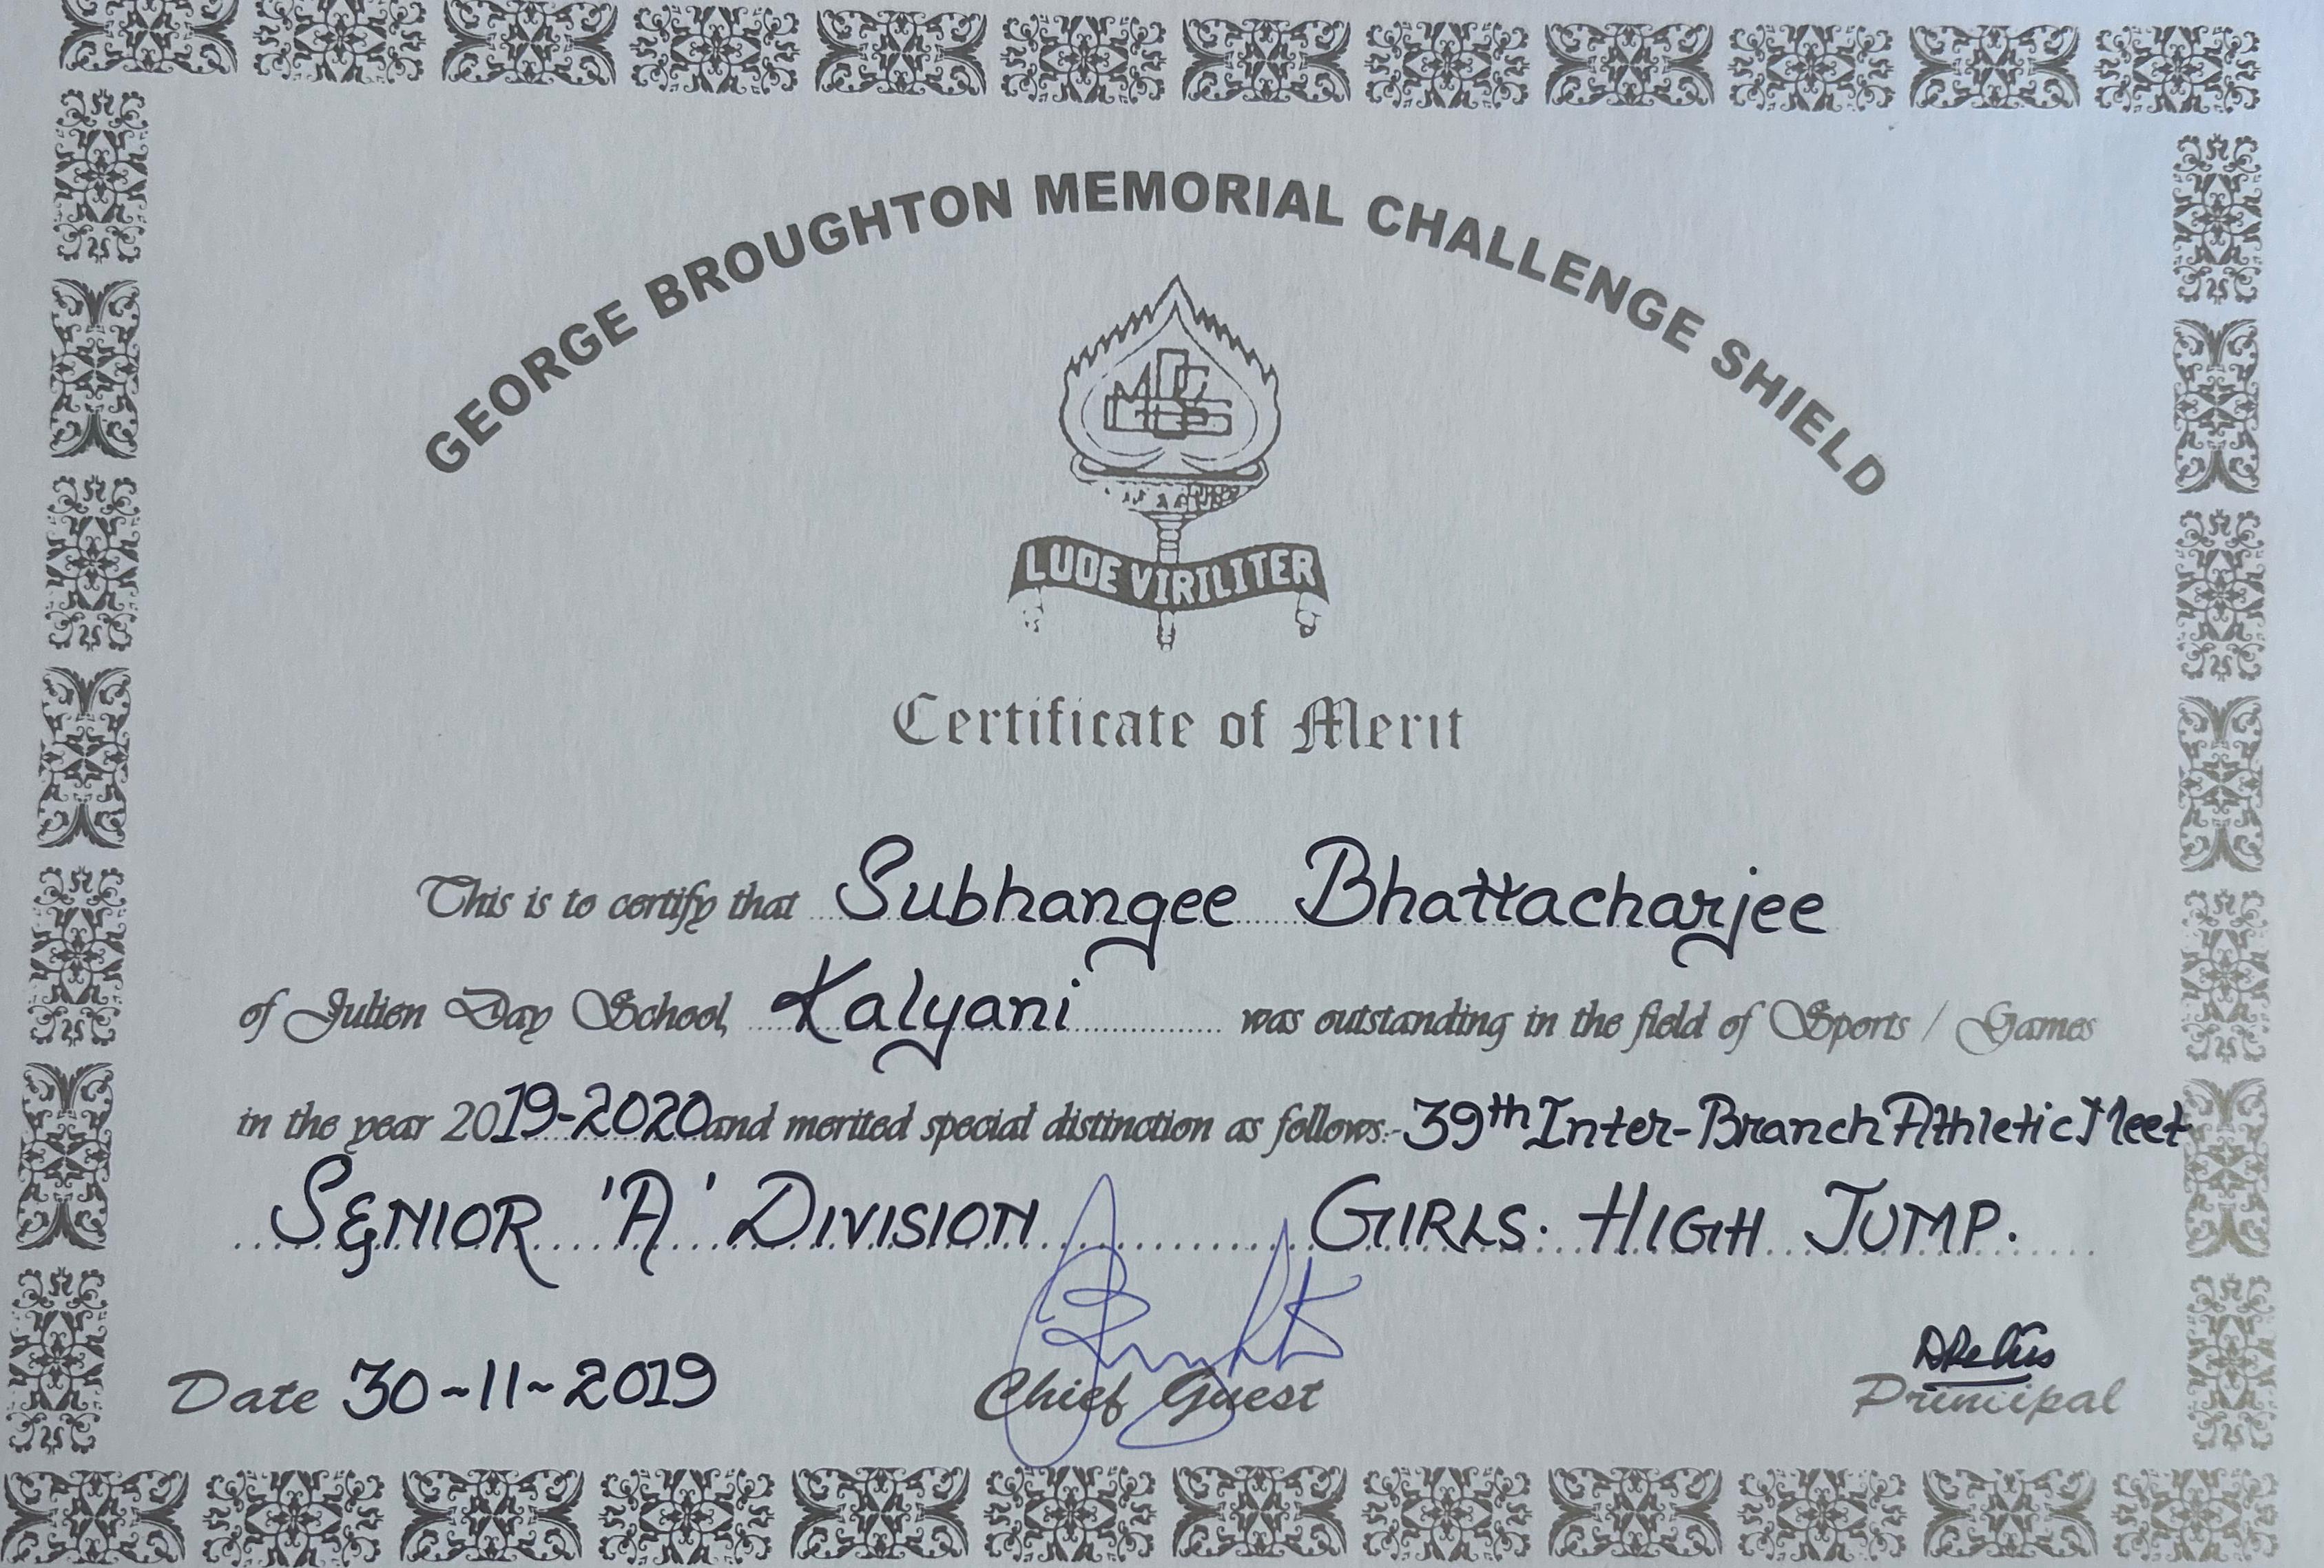 GEORGE BROUGHTON MEMORIAL CHALLENGE SHIELD
LUDE VIRILITER
Certificate of Merit
This is to certify that Subhangee Bhattacharjee
of Julien Day School, Kalyani was outstanding in the field of Sports / Games
in the year 2019-2020 and merited special distinction as follows:- 39th Inter-Branch Athletic Meet
SENIOR 'A' DIVISION GIRLS. HIGH JUMP.
Date 30-11-2019 Chief Guest Principal